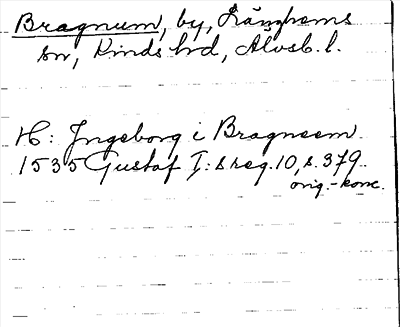 Bragnum, by, Länghems
sn, Kinds hrd, Älvsb. l.
H: Ingeborg i Bragneem
1535 Gustaf I:s reg. 10, s. 379.
orig.-konc.